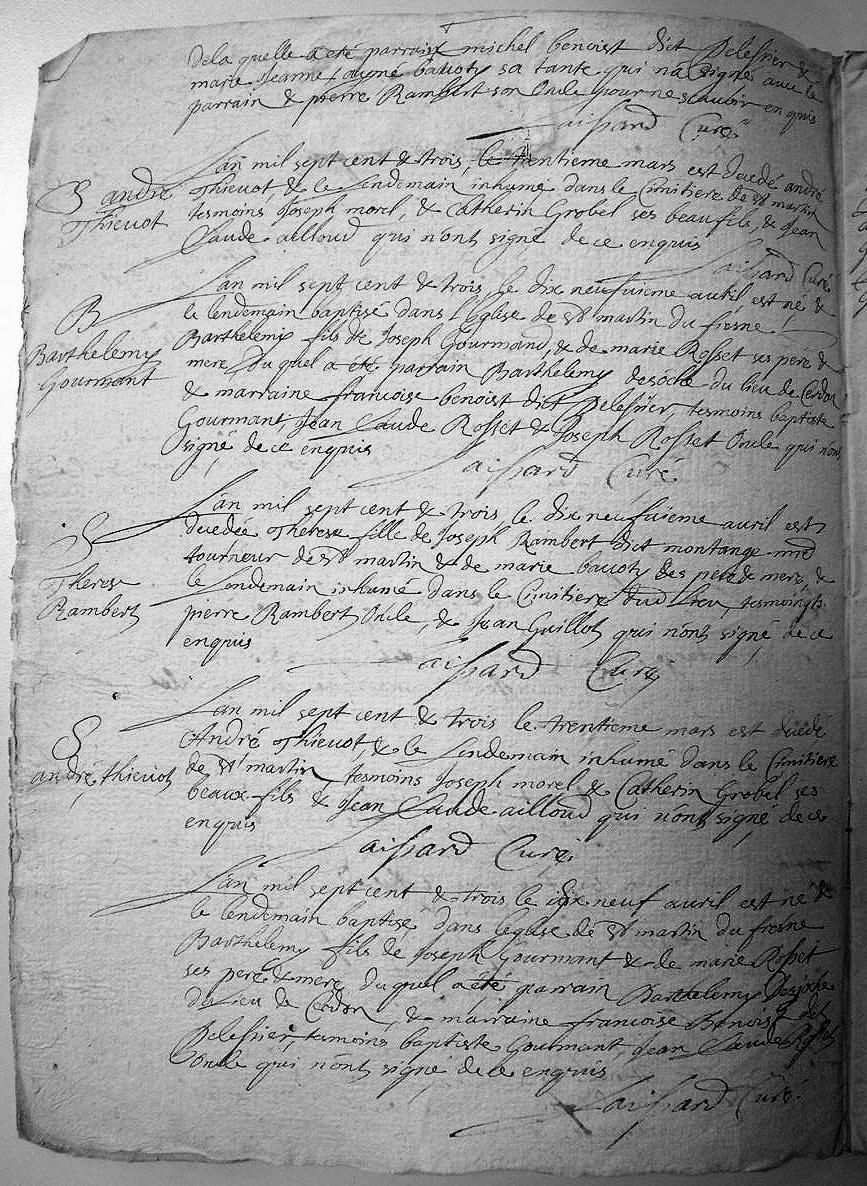 dela quelle a été parrain michel benoist dict Pelessier &
marie Jeanne baccoty sa tante qui n'a signés avec le
parrain & pierre Rambert son Oncle pour ne scavoir enquis
aissard Curé
Lan mil sept cent & trois, le trentieme mars est decedé andré
S andré
Thievot
Thievot, & le Lendemain inhumé dans le Cimitiere de st martin
tesmoins Joseph morel, & Catherin Grobel ses beaufils, & Jean
Claude ailloud qui n'ont signé de ce enquis
aissard Curé
Lan mil sept cent & trois le dix neufuieme auril est né &
le lendemain baptisé dans l'Eglise de st martin du fresne
B
Barthelemy
Gourmant
Barthelemy fils de Joseph Gourmand, & de marie Rosset ses pere &
mere Du quel a été parrain Barthelemy desoche du lieu de Cerdon
& marraine francoise benoist dict Pelessier, tesmoins baptiste
Gourmant, Jean Claude Rosset & Joseph Rosset Oncle qui n'ont
signé de ce enquis
aissard Curé
Lan mil sept cent & trois le dix neufuieme auril est
S
Therese
Rambert
decedée Therese fille de Joseph Rambert dict montange
tourneur de st martin & de marie baccoty ses pere & mere, &
le Lendemain inhumé dans le Cimitiere dud Lieu, tesmoingts
pierre Rambert Oncle, & Jean Guillot qui n'ont signé de ce
enquis
aissard Curé
Lan mil sept cent & trois le trentieme mars est decedé
S
andré thievot
André Thievot & le Lendemain inhumé dans le Cimitiere
de st martin, tesmoins Joseph morel & Catherin Grobel ses
beaux-fils & Jean Claude ailloud qui n'ont signé de ce
enquis
aissard Curé
Lan mil sept cent & trois le dix neuf auril est né &
le lendemain baptisé dans l'eglise de st martin du fresne
Barthelemy fils de Joseph Gourmant & de marie Rosset
ses pere & mere, duquel a été parrain Barthelemy Desoche
du Lieu de Cerdon, & marraine francoise Benoist dit
Pelessier, tamoins baptiste Gourmant, Jean Claude Rosset
Oncle qui n'ont signé de ce enquis
aissard Curé